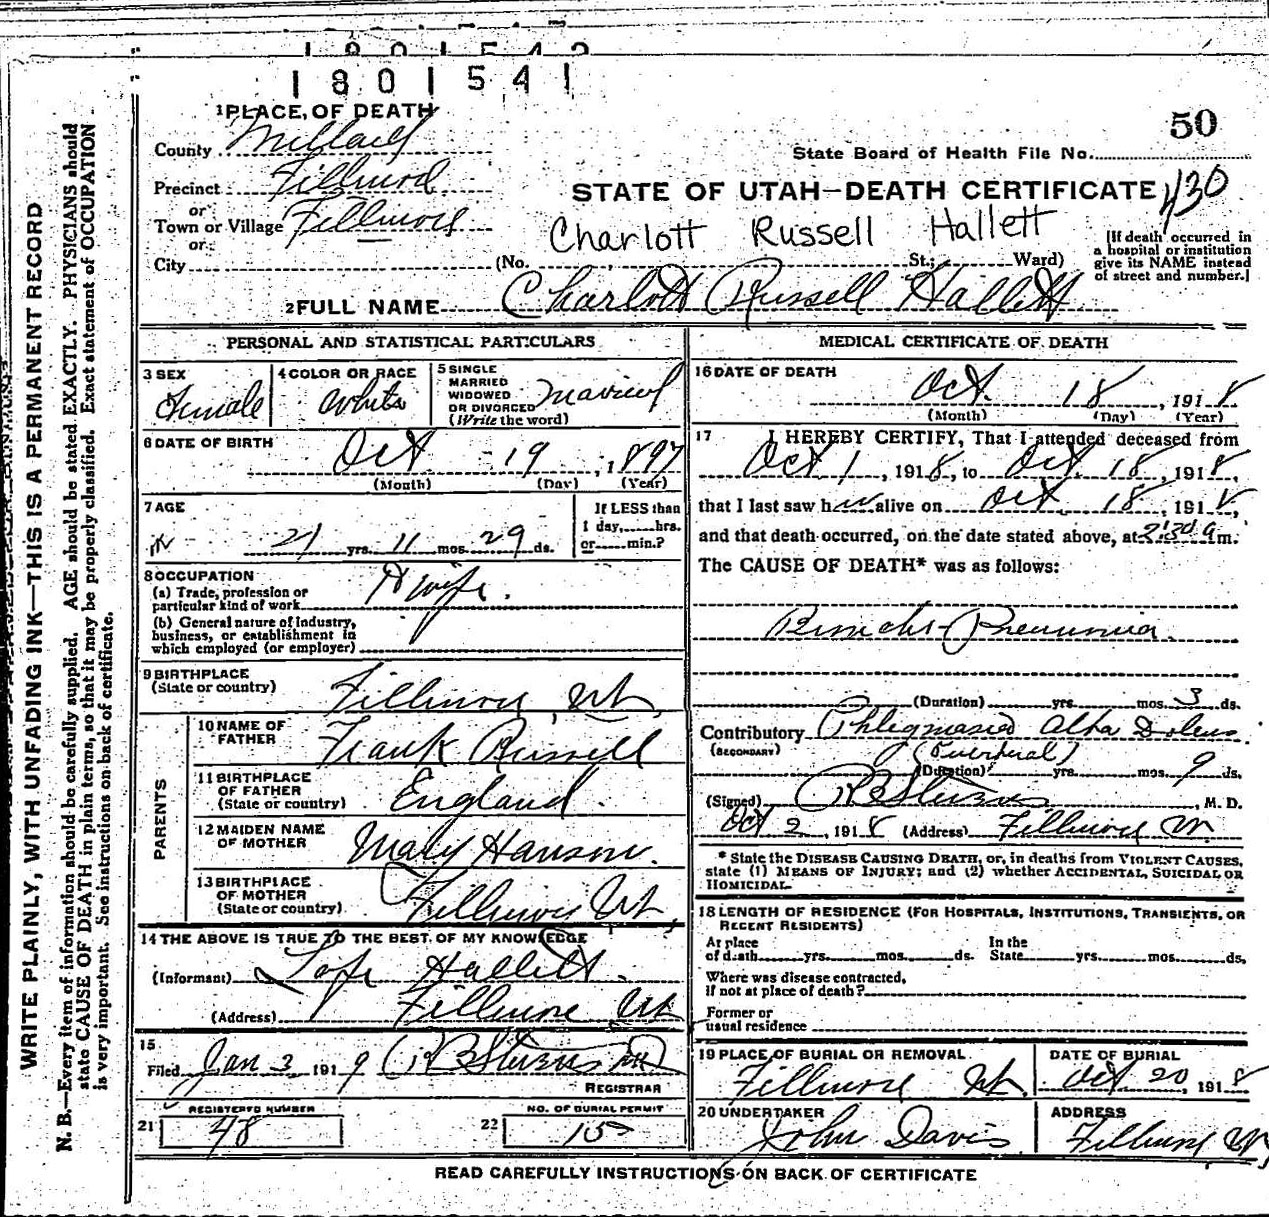 1801542
1801541
1 PLACE OF DEATH
50
County Millard
State Board of Health File No.
Precinct Fillmore
STATE OF UTAH—DEATH CERTIFICATE 430
or
Town or Village Fillmore
Charlott Russell Hallett
or
City (No. St.; Ward)
[If death occurred in a hospital or institution give its NAME instead of street and number.]
2 FULL NAME Charlott Russell Hallett
PERSONAL AND STATISTICAL PARTICULARS
3 SEX Female
4 COLOR OR RACE White
5 SINGLE MARRIED WIDOWED OR DIVORCED (Write the word) Married
6 DATE OF BIRTH
Oct 19, 1897
(Month) (Day) (Year)
7 AGE
21 yrs. 11 mos. 29 ds.
If LESS than 1 day, hrs. or min.?
8 OCCUPATION
(a) Trade, profession or particular kind of work H wife.
(b) General nature of industry, business, or establishment in which employed (or employer)
9 BIRTHPLACE
(State or country) Fillmore, Ut.
PARENTS
10 NAME OF FATHER Frank Russell
11 BIRTHPLACE OF FATHER (State or country) England.
12 MAIDEN NAME OF MOTHER Mary Hanson.
13 BIRTHPLACE OF MOTHER (State or country) Fillmore Ut.
14 THE ABOVE IS TRUE TO THE BEST OF MY KNOWLEDGE
(Informant) Hallett.
(Address) Fillmore Ut
15
Filed Jan 3 1919 RB Stevens MD
REGISTRAR
21 REGISTERED NUMBER 48
22 NO. OF BURIAL PERMIT 15
MEDICAL CERTIFICATE OF DEATH
16 DATE OF DEATH
Oct. 18, 1918
(Month) (Day) (Year)
17 I HEREBY CERTIFY, That I attended deceased from
Oct 1, 1918, to Oct. 18, 1918,
that I last saw her alive on Oct. 18, 1918,
and that death occurred, on the date stated above, at 2:30 a m.
The CAUSE OF DEATH* was as follows:
Broncho-Pneumonia.
(Duration) yrs. mos. 3 ds.
Contributory Phlegmasia Alba Dolens
(SECONDARY) (Puerperal)
(Duration) yrs. mos. 9 ds.
(Signed) RB Stevens, M. D.
Oct 2, 1918 (Address) Fillmore Ut
* State the DISEASE CAUSING DEATH, or, in deaths from VIOLENT CAUSES, state (1) MEANS OF INJURY; and (2) whether ACCIDENTAL, SUICIDAL OR HOMICIDAL.
18 LENGTH OF RESIDENCE (FOR HOSPITALS, INSTITUTIONS, TRANSIENTS, OR RECENT RESIDENTS)
At place of death yrs. mos. ds. In the State yrs. mos. ds.
Where was disease contracted, if not at place of death?
Former or usual residence
19 PLACE OF BURIAL OR REMOVAL
Fillmore Ut.
DATE OF BURIAL
Oct 20, 1918
20 UNDERTAKER
John Davis
ADDRESS
Fillmore, Ut
READ CAREFULLY INSTRUCTIONS ON BACK OF CERTIFICATE
WRITE PLAINLY, WITH UNFADING INK—THIS IS A PERMANENT RECORD
N. B.—Every item of information should be carefully supplied. AGE should be stated EXACTLY. PHYSICIANS should
state CAUSE OF DEATH in plain terms, so that it may be properly classified. Exact statement of OCCUPATION
is very important. See instructions on back of certificate.